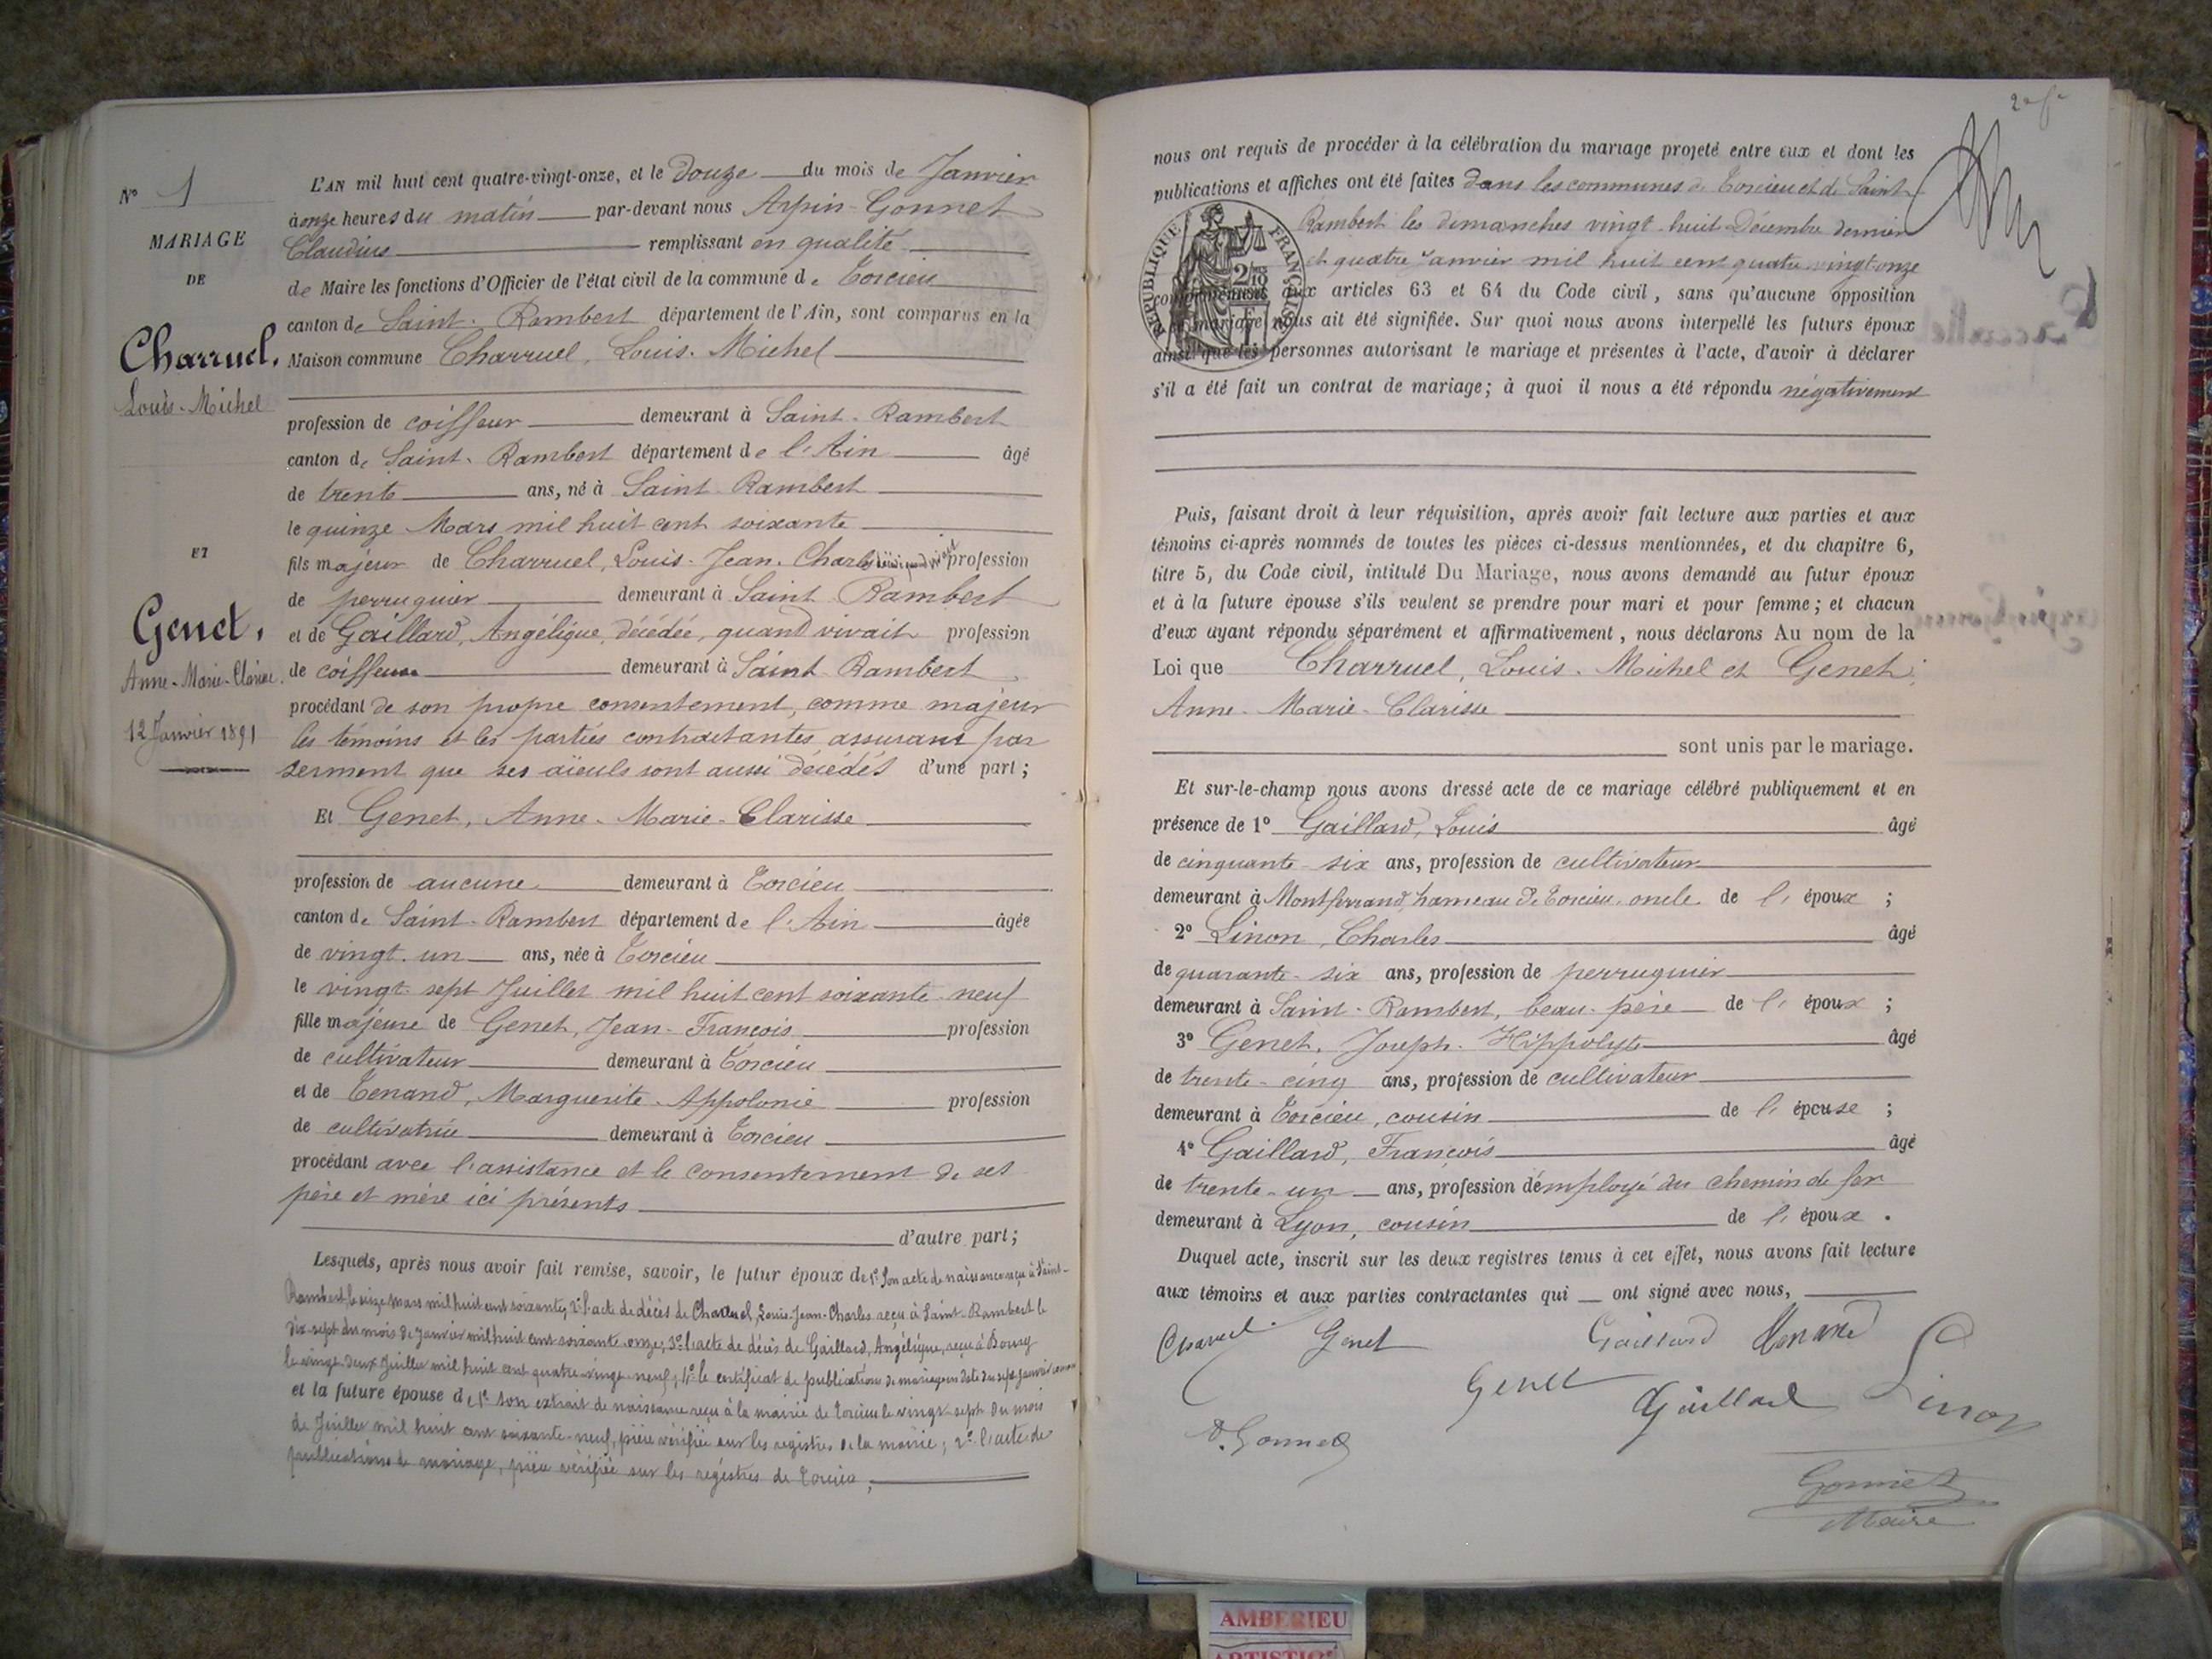 N° 1
MARIAGE
DE
Charruel,
Louis-Michel
ET
Genet,
Anne-Marie-Clarisse.
12 Janvier 1891
L'AN mil huit cent quatre-vingt-onze, et le Douze du mois de Janvier
à onze heures du matin par-devant nous Arpin-Gonnet
Claudius remplissant en qualité
de Maire les fonctions d'Officier de l'état civil de la commune de Torcieu
canton de Saint-Rambert département de l'Ain, sont comparus en la
Maison commune Charruel, Louis-Michel
profession de coiffeur demeurant à Saint-Rambert
canton de Saint-Rambert département de l'Ain âgé
de trente ans, né à Saint-Rambert
le quinze Mars mil huit cent soixante
fils majeur de Charruel, Louis-Jean-Charles décédé quand vivait profession
de perruquier demeurant à Saint Rambert
et de Gaillard, Angélique, décédée, quand vivait profession
de coiffeuse demeurant à Saint Rambert
procédant de son propre consentement, comme majeur
les témoins et les parties contractantes assurant par
serment que ses aïeuls sont aussi décédés d'une part;
Et Genet, Anne-Marie-Clarisse
profession de aucune demeurant à Torcieu
canton de Saint-Rambert département de l'Ain âgée
de vingt-un ans, née à Torcieu
le vingt-sept Juillet mil huit cent soixante-neuf
fille majeure de Genet, Jean-François profession
de cultivateur demeurant à Torcieu
et de Tenand, Marguerite-Appolonie profession
de cultivatrice demeurant à Torcieu
procédant avec l'assistance et le consentement de ses
père et mère ici présents
d'autre part;
Lesquels, après nous avoir fait remise, savoir, le futur époux de 1° Son acte de naissance reçu à Saint-
Rambert le seize mars mil huit cent soixante; 2° l'acte de décès de Charruel, Louis-Jean-Charles reçu à Saint-Rambert le
dix-sept du mois de Janvier mil huit cent soixante-onze; 3° l'acte de décès de Gaillard, Angélique, reçu à Bourg
le vingt-deux Juillet mil huit cent quatre-vingt-neuf; 4° le certificat de publications de mariage en date du sept Janvier courant
et la future épouse de 1° son extrait de naissance reçu à la mairie de Torcieu le vingt-sept du mois
de Juillet mil huit cent soixante-neuf, pièce vérifiée sur les registres de la mairie; 2° l'acte de
publications de mariage, pièce vérifiée sur les registres de Torcieu;
nous ont requis de procéder à la célébration du mariage projeté entre eux et dont les
publications et affiches ont été faites dans les communes de Torcieu et de Saint-
Rambert les dimanches vingt-huit Décembre dernier
et quatre Janvier mil huit cent quatre-vingt-onze
RÉPUBLIQUE FRANÇAISE
conformément aux articles 63 et 64 du Code civil, sans qu'aucune opposition
mariage nous ait été signifiée. Sur quoi nous avons interpellé les futurs époux
ainsi que les personnes autorisant le mariage et présentes à l'acte, d'avoir à déclarer
s'il a été fait un contrat de mariage; à quoi il nous a été répondu négativement
Puis, faisant droit à leur réquisition, après avoir fait lecture aux parties et aux
témoins ci-après nommés de toutes les pièces ci-dessus mentionnées, et du chapitre 6,
titre 5, du Code civil, intitulé Du Mariage, nous avons demandé au futur époux
et à la future épouse s'ils veulent se prendre pour mari et pour femme; et chacun
d'eux ayant répondu séparément et affirmativement, nous déclarons Au nom de la
Loi que Charruel, Louis-Michel et Genet,
Anne-Marie-Clarisse
sont unis par le mariage.
Et sur-le-champ nous avons dressé acte de ce mariage célébré publiquement et en
présence de 1° Gaillard, Louis âgé
de cinquante-six ans, profession de cultivateur
demeurant à Montferrand, hameau de Torcieu, oncle de l' époux ;
2° Linon, Charles âgé
de quarante-six ans, profession de perruquier
demeurant à Saint-Rambert, beau-père de l' époux ;
3° Genet, Joseph-Hippolyte âgé
de trente-cinq ans, profession de cultivateur
demeurant à Torcieu, cousin de l' épouse ;
4° Gaillard, François âgé
de trente-un ans, profession d'employé du chemin de fer
demeurant à Lyon, cousin de l' époux .
Duquel acte, inscrit sur les deux registres tenus à cet effet, nous avons fait lecture
aux témoins et aux parties contractantes qui ont signé avec nous,
Charruel Genet Gaillard Tenand
Genet Gaillard Linon
Gonnet
Gonnet
Maire
AMBERIEU
ARTISTIQ